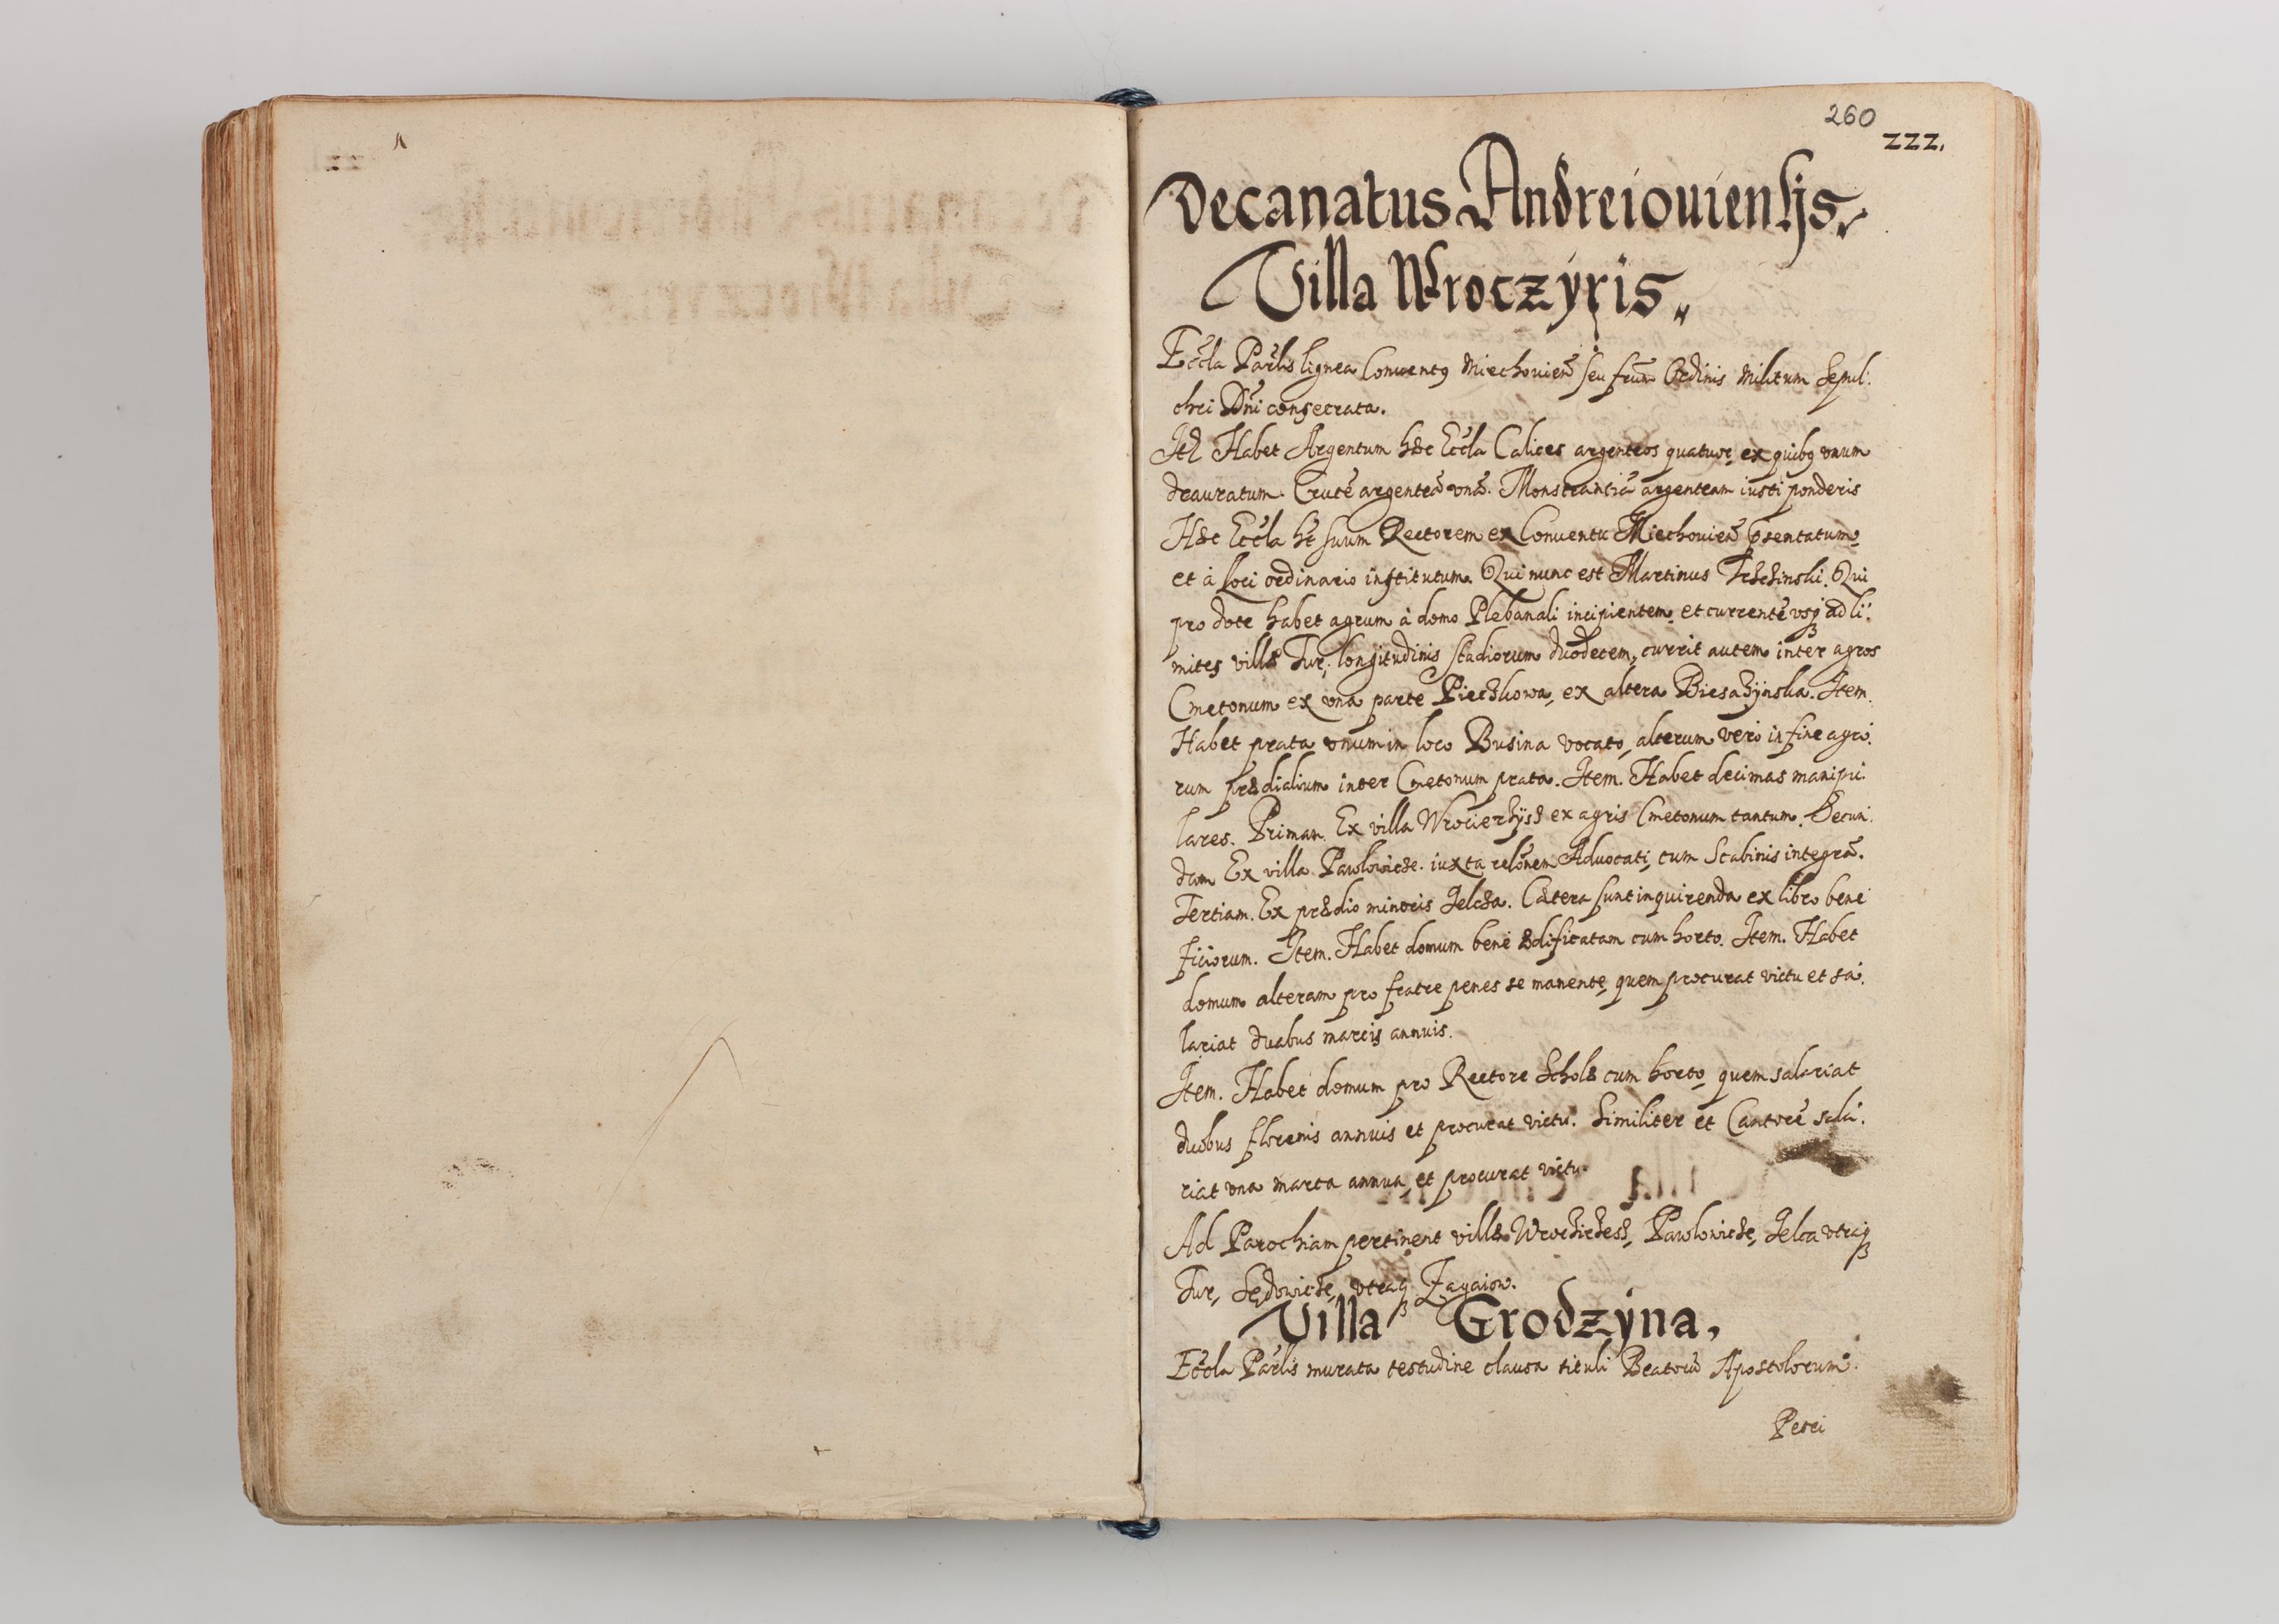 260
222.
Decanatus Andreiouiensis.
Villa Wroczÿris,,
Eccla Parlis lignea Conuentq Miechouien̄ seu frum Ordinis Militum Sepul:
chri Dni consecrata.
Itē Habet Argentum hæc Eccla Calices argenteos quatuor, ex quibq vnum
deauratum. Crucē argenteā vnā. Monstrantiā argenteam iusti ponderis
Hæc Eccla hēt suum Rectorem ex Conuentu Miechouien̄ pꝛsentatum,
et à Loci ordinario institutum. Qui nunc est Martinus Qui
pro dote habet agrum à domo Plebanali incipientem, et currentē vsqꝫ ad li:
mites villæ Tur, longitudinis stadiorum duodecem, currit autem inter agros
Cmetonum ex vna parte Pieczkowa, ex altera Item.
Habet prata vnum in loco Busina vocato, alterum verò in fine agro:
rum prædialium inter Cmetonum prata. Item. Habet decimas manipu:
lares. Primam. Ex villa Wrocierzÿsz ex agris Cmetonum tantum. Secun:
dam Ex villa Pawlowicze. iuxta relōnem Aduocati, cum Scabinis integrā.
Tertiam. Ex prædio minoris Jelcza. Cætera sunt inquirenda ex libro bene
ficiorum. Item. Habet domum benè ædificatam cum horto. Item. Habet
domum alteram pro fratre penes se manente, quem procurat victu et sa:
lariat duabus marcis annuis.
Item. Habet domum pro Rectore Scholæ cum horto, quem salariat
duobus florenis annuis et procurat victu. Similiter et Cantorē sala:
riat vna marca annua, et procurat victu.
Ad Parochiam pertinent villæ Pawlowicze, Jelca vtraqꝫ
Tur, Sędowicze, vtraqꝫ Zagaiow.
Villa Grodzÿna,
Eccla Parlis murata testudine clausa tituli Beatorū Apostolorum.
Petri